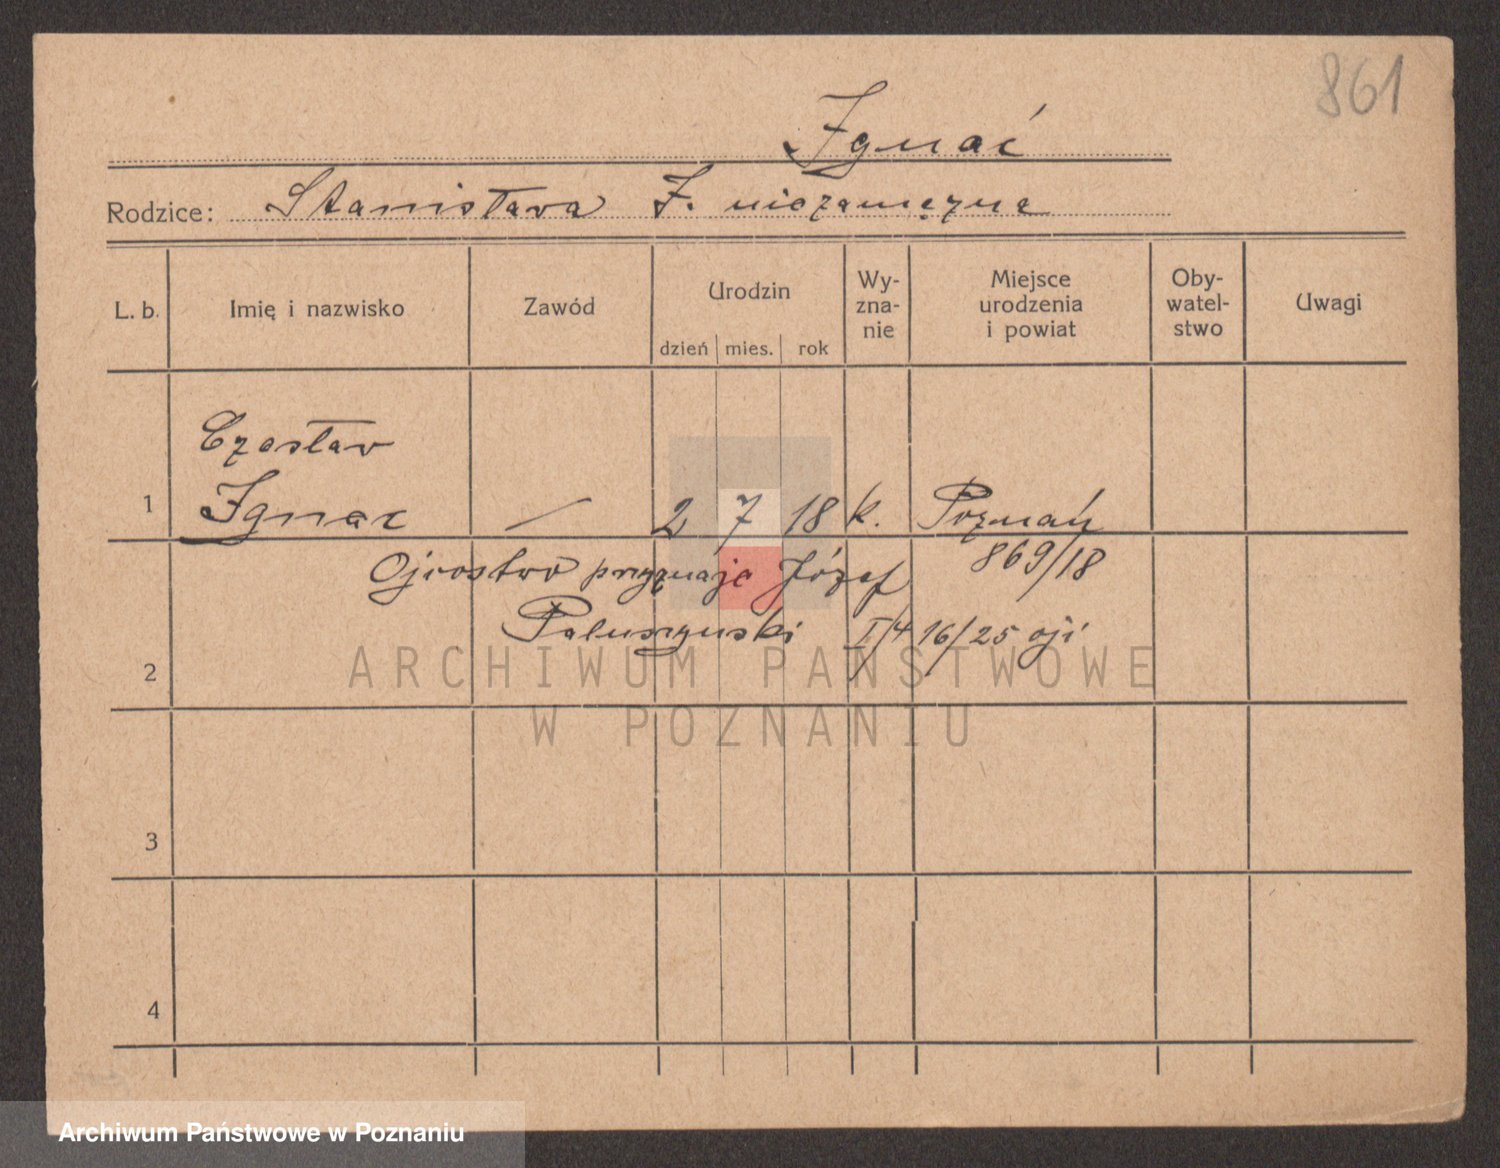 861
Ignać
Rodzice: Stanisława I. niezamężna
L. b. Imię i nazwisko Zawód Urodzin dzień mies. rok Wy-zna-nie Miejsce urodzenia i powiat Oby-watel-stwo Uwagi
Czesław
1 Ignac — 2 7 18 k. Poznań
869/18
Ojcostwo przyznaje Józef
Paluszyński I/4 16/25
2
ARCHIWUM PAŃSTWOWE
W POZNANIU
3
4
Archiwum Państwowe w Poznaniu